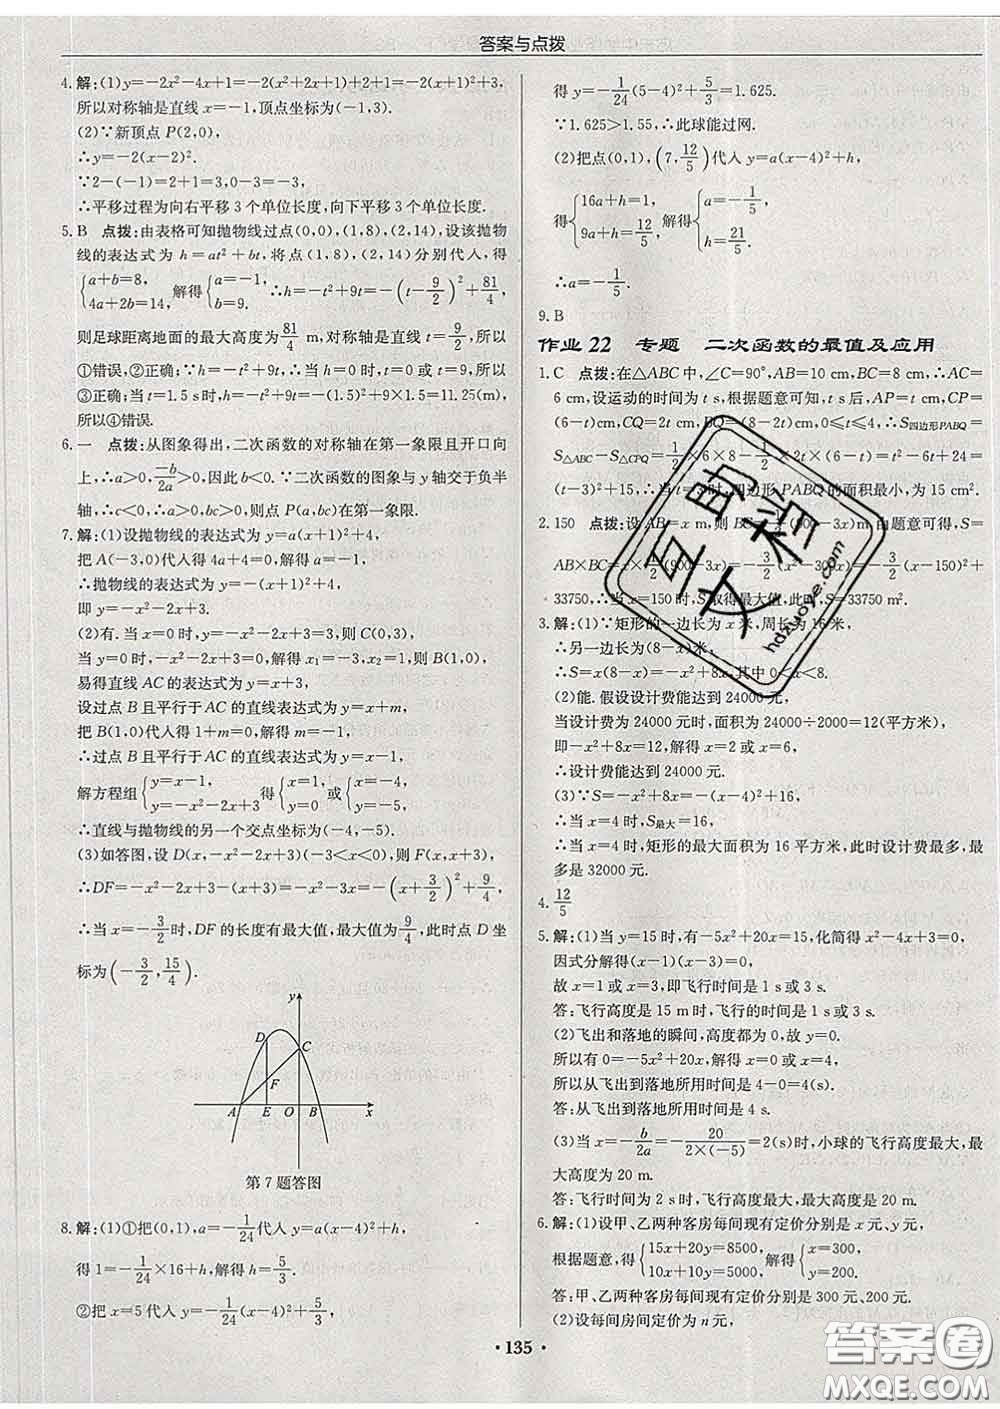 答案与点拨
4.解:(1)y=-2x²-4x+1=-2(x²+2x+1)+2+1=-2(x+1)²+3,
所以对称轴是直线x=-1,顶点坐标为(-1,3).
(2)∵新顶点P(2,0),
∴y=-2(x-2)².
∵2-(-1)=2+1=3,0-3=-3,
∴平移过程为向右平移3个单位长度,向下平移3个单位长度.
5.B 点拨:由表格可知抛物线过点(0,0),(1,8),(2,14),设该抛物
线的表达式为h=at²+bt,将点(1,8),(2,14)分别代入,得
{a+b=8, 4a+2b=14, 解得{a=-1, b=9. ∴h=-t²+9t=-(t-9/2)²+81/4,
则足球距离地面的最大高度为81/4 m,对称轴是直线t=9/2,所以
①错误,②正确;∵h=-t²+9t,∴当h=0时,t=0或t=9,所以
③正确;当t=1.5 s时,h=-t²+9t=-(1.5)²+9×1.5=11.25(m),
所以④错误.
6.一 点拨:从图象得出,二次函数的对称轴在第一象限且开口向
上,∴a>0,-b/2a>0,因此b<0.∵二次函数的图象与y轴交于负半
轴,∴c<0,∴a>0,bc>0,则点P(a,bc)在第一象限.
7.解:(1)设抛物线的表达式为y=a(x+1)²+4,
把A(-3,0)代入得4a+4=0,解得a=-1,
∴抛物线的表达式为y=-(x+1)²+4,
即y=-x²-2x+3.
(2)有.当x=0时,y=-x²-2x+3=3,则C(0,3),
当y=0时,-x²-2x+3=0,解得x₁=-3,x₂=1,则B(1,0),
易得直线AC的表达式为y=x+3,
设过点B且平行于AC的直线表达式为y=x+m,
把B(1,0)代入得1+m=0,解得m=-1,
∴过点B且平行于AC的直线表达式为y=x-1,
解方程组{y=x-1, y=-x²-2x+3 得{x=1, y=0 或{x=-4, y=-5.
∴直线与抛物线的另一个交点坐标为(-4,-5).
(3)如答图,设D(x,-x²-2x+3)(-3<x<0),则F(x,x+3),
∴DF=-x²-2x+3-(x+3)=-x²-3x=-(x+3/2)²+9/4,
∴当x=-3/2时,DF的长度有最大值,最大值为9/4,此时点D坐
标为(-3/2,15/4).
y
D
C
F
A E O B x
第7题答图
8.解:(1)①把(0,1),a=-1/24代入y=a(x-4)²+h,
得1=-1/24×16+h,解得h=5/3.
②把x=5代入y=-1/24(x-4)²+5/3,
得y=-1/24(5-4)²+5/3=1.625.
∵1.625>1.55,∴此球能过网.
(2)把点(0,1),(7,12/5)代入y=a(x-4)²+h,
得{16a+h=1, 9a+h=12/5, 解得{a=-1/5, h=21/5.
∴a=-1/5.
9.B
作业22 专题 二次函数的最值及应用
1.C 点拨:在△ABC中,∠C=90°,AB=10 cm,BC=8 cm,∴AC=
6 cm,设运动的时间为t s,根据题意可知,t s后,AP=t cm,CP=
(6-t)cm,CQ=2t cm,BQ=(8-2t)cm,0≤t≤4,∴S四边形PABQ=
S△ABC-S△CPQ=1/2×6×8-1/2×2t×(6-t)=t²-6t+24=
(t-3)²+15,∴当t=3时,四边形PABQ的面积最小,为15 cm².
2.150 点拨:设AB=x m,则BC=1/2(900-3x)m,由题意可得,S=
AB×BC=x×1/2(900-3x)=-3/2(x²-300x)=-3/2(x-150)²+
33750,∴当x=150时,S取得最大值,此时,S=33750 m².
3.解:(1)∵矩形的一边长为x米,周长为16米,
∴另一边长为(8-x)米,
∴S=x(8-x)=-x²+8x,其中0<x<8.
(2)能.假设设计费能达到24000元,
当设计费为24000元时,面积为24000÷2000=12(平方米),
即-x²+8x=12,解得x=2或x=6,
∴设计费能达到24000元.
(3)∵S=-x²+8x=-(x-4)²+16,
∴当x=4时,S最大=16,
∴当x=4时,矩形的最大面积为16平方米,此时设计费最多,最
多是32000元.
4.12/5
5.解:(1)当y=15时,有-5x²+20x=15,化简得x²-4x+3=0,
因式分解得(x-1)(x-3)=0,
故x=1或x=3,即飞行时间是1 s或3 s.
答:飞行高度是15 m时,飞行的时间是1 s或3 s.
(2)飞出和落地的瞬间,高度都为0,故y=0.
所以有0=-5x²+20x,解得x=0或x=4,
所以从飞出到落地所用时间是4-0=4(s).
答:从飞出到落地所用时间是4 s.
(3)当x=-b/2a=-20/(2×(-5))=2(s)时,小球的飞行高度最大,最
大高度为20 m.
答:飞行时间为2 s时,飞行高度最大,最大高度为20 m.
6.解:(1)设甲、乙两种客房每间现有定价分别是x元、y元,
根据题意,得{15x+20y=8500, 10x+10y=5000, 解得{x=300, y=200.
答:甲、乙两种客房每间现有定价分别是300元、200元.
(2)设每间房间定价为n元,
• 135 •
互助文档
hdzuoye.com
答案圈
MXQE.COM